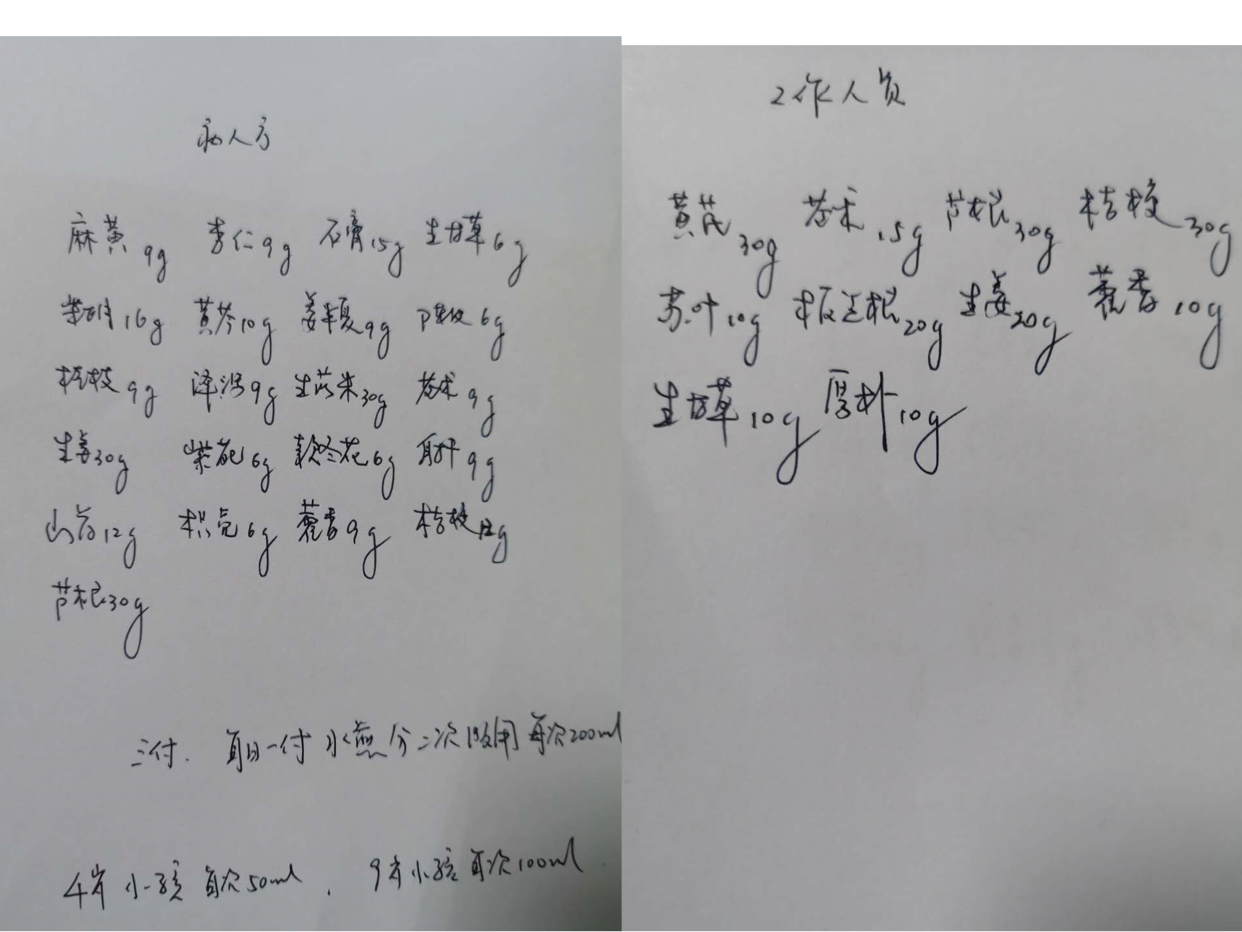 病人方
麻黄9g 杏仁9g 石膏15g 生甘草6g
柴胡16g 黄芩10g 姜半夏9g 陈皮6g
桂枝9g 泽泻9g 生苡米30g 苍术9g
生姜30g 紫菀6g 款冬花6g 射干9g
山药12g 枳壳6g 藿香9g 桔梗12g
芦根30g
三付. 每日一付 水煎分二次服用 每次200ml
4岁小孩 每次50ml , 9岁小孩 每次100ml
工作人员
黄芪30g 苍术15g 芦根30g 桔梗30g
苏叶10g 板兰根20g 生姜20g 藿香10g
生甘草10g 厚朴10g